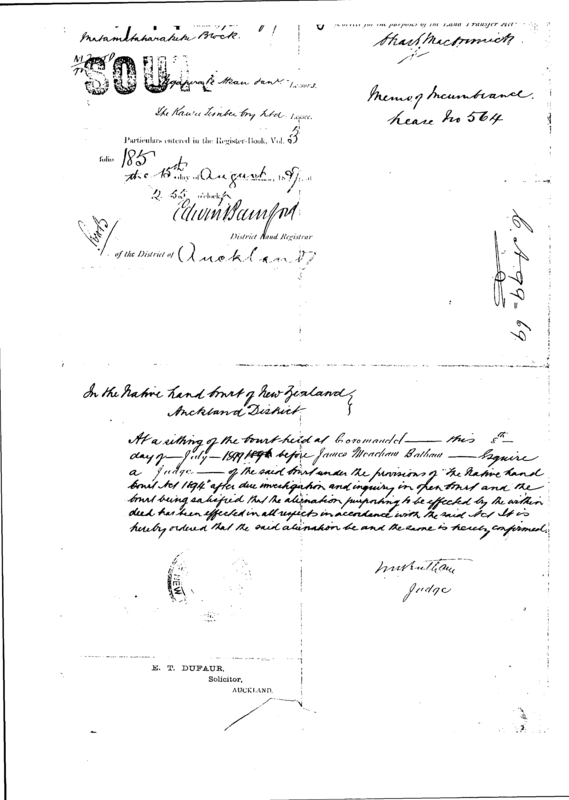 Matamataharakeke Block.
SOU
Lessors.
The Kauri Timber Coy Ltd Lessee.
Particulars entered in the Register-Book, Vol. 3
folio 185
the 15th day of August, 189 at
2.55 o'clock
Edwin Bamford
District Land Registrar
of the District of Auckland
correct for the purposes of the Land Transfer Act
Chas E MacCormick
Memo of Incumbrance.
Lease No 564
In the Native Land Court of New Zealand
Auckland District
At a sitting of the Court held at Coromandel this 8th
day of July before James Meacham Batham Esquire
a Judge of the said Court under the provisions of "The Native Land
Court Act 1894" after due investigation and inquiry in open Court and the
Court being satisfied that the alienation purporting to be effected by the within
deed has been effected in all respects in accordance with the said Act It is
hereby ordered that the said alienation be and the same is hereby confirmed.
Batham
Judge
NEW
E. T. DUFAUR,
Solicitor,
AUCKLAND.